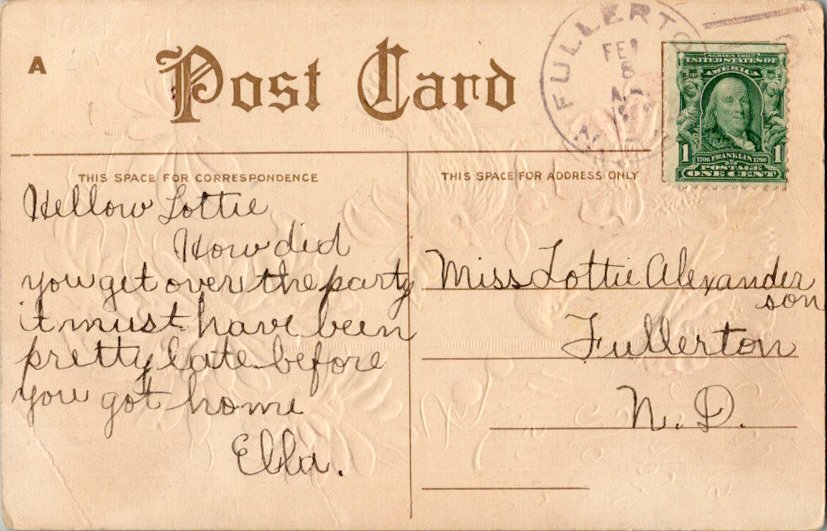 A
Post Card
FULLERTON
FEB
8
THIS SPACE FOR CORRESPONDENCE
Hellow Lottie
How did
you get over the party
it must have been
pretty late before
you got home
Ella.
SERIES 1902
UNITED STATES OF
AMERICA
1 1706 FRANKLIN 1790 1
POSTAGE
ONE CENT
THIS SPACE FOR ADDRESS ONLY
Miss Lottie Alexander
son
Fullerton
N. D.